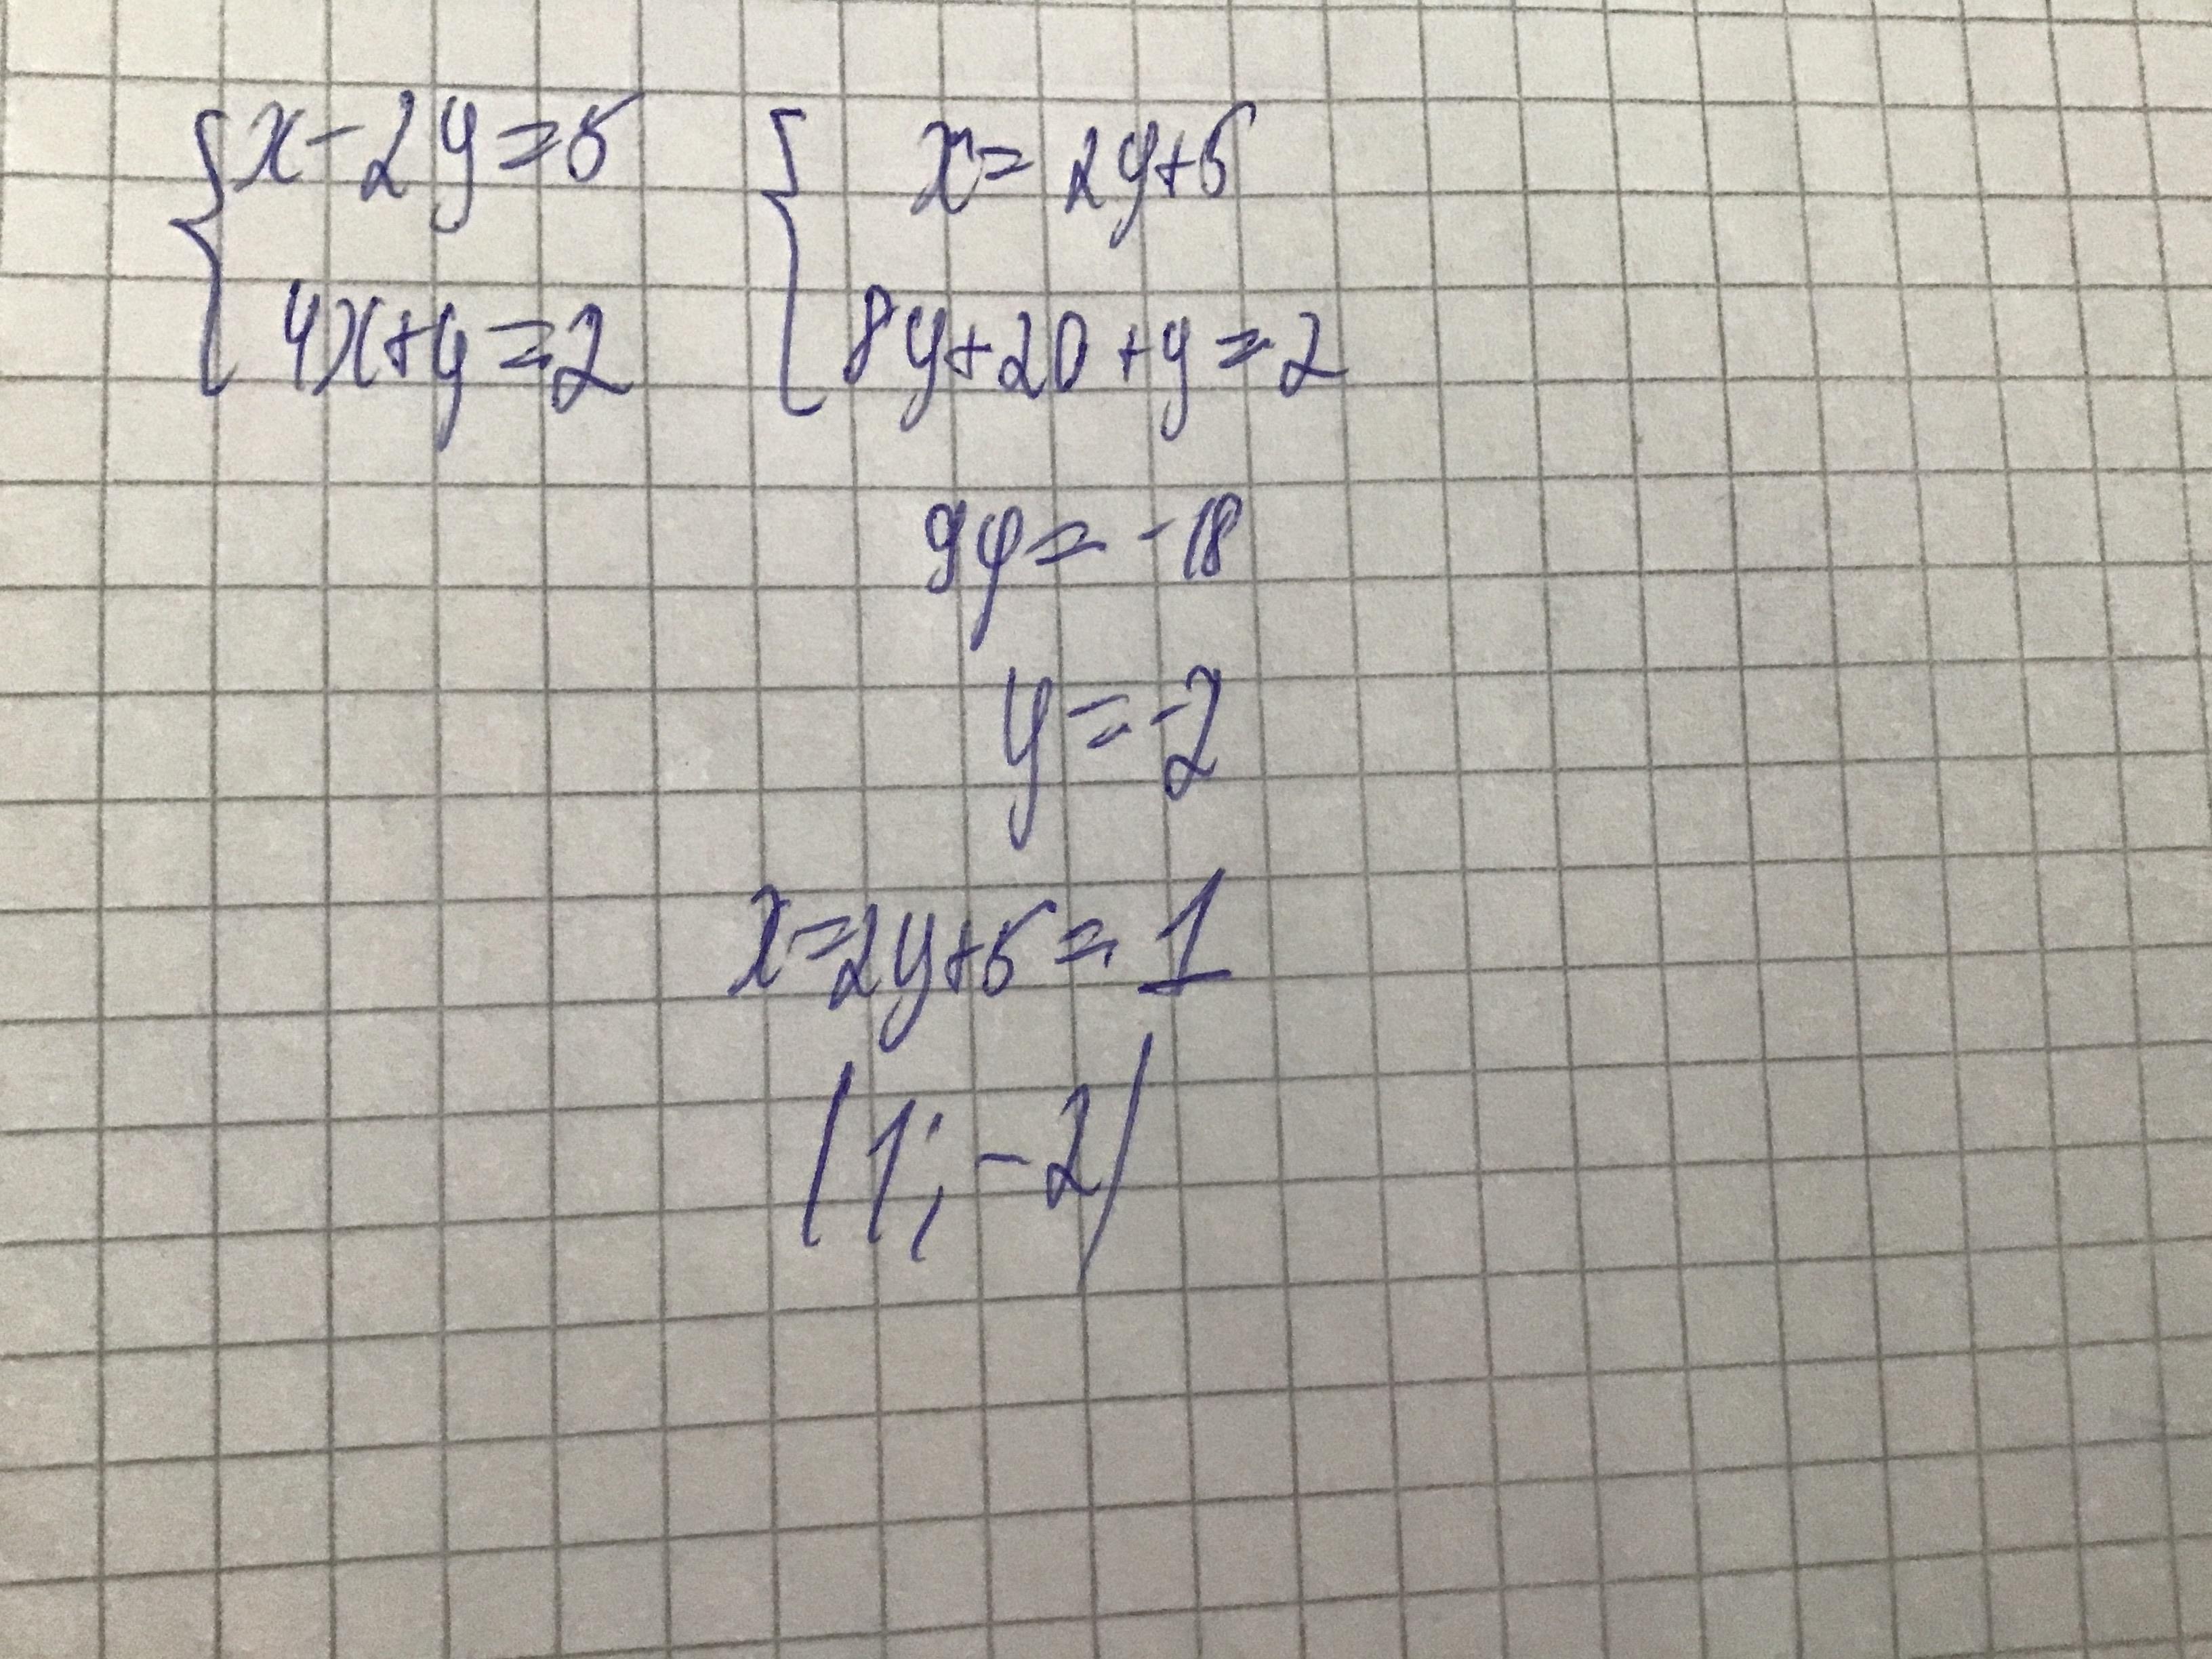 { x-2y=5 { x=2y+5
4x+y=2 8y+20+y=2
9y=-18
y=-2
x=2y+5=1
(1;-2)